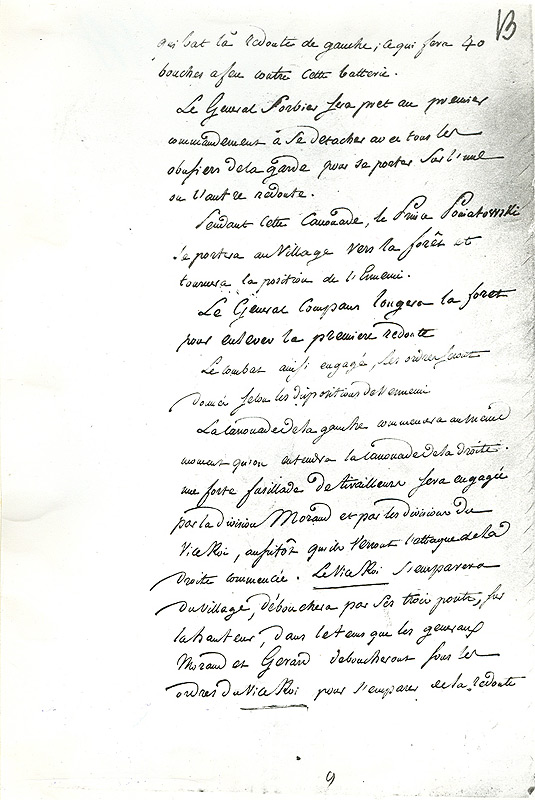 13
qui bat la redoute de gauche; ce qui fera 40
bouches a feu contre cette batterie.
Le General Sorbier sera pret au premier
commandement à se detacher avec tous les
obusiers de la garde pour se porter sur l'une
ou l'autre redoute.
Pendant cette Canonade, le Prince Poniatowski
se portera au Village vers la forêt et
tournera la position de l'Ennemi.
Le General Compans longera la foret
pour enlever la premiere redoute
Le combat ainsi engagé, les ordres seront
donnés selon les dispositions de l'ennemi
La Canonade de la gauche commencera au même
moment qu'on entendra la Canonade de la droite.
une forte fusillade de tirailleurs sera engagée
par la division Morand et par les divisions du
Vice Roi, aussitôt qu'ils verront l'attaque de la
droite commencée. Le Vice Roi s'emparera
du village, débouchera par ses trois ponts, sur
la hauteur, dans le tems que les generaux
Morand et Gerard deboucheront sous les
ordres du Vice Roi pour s'emparer de la redoute
9